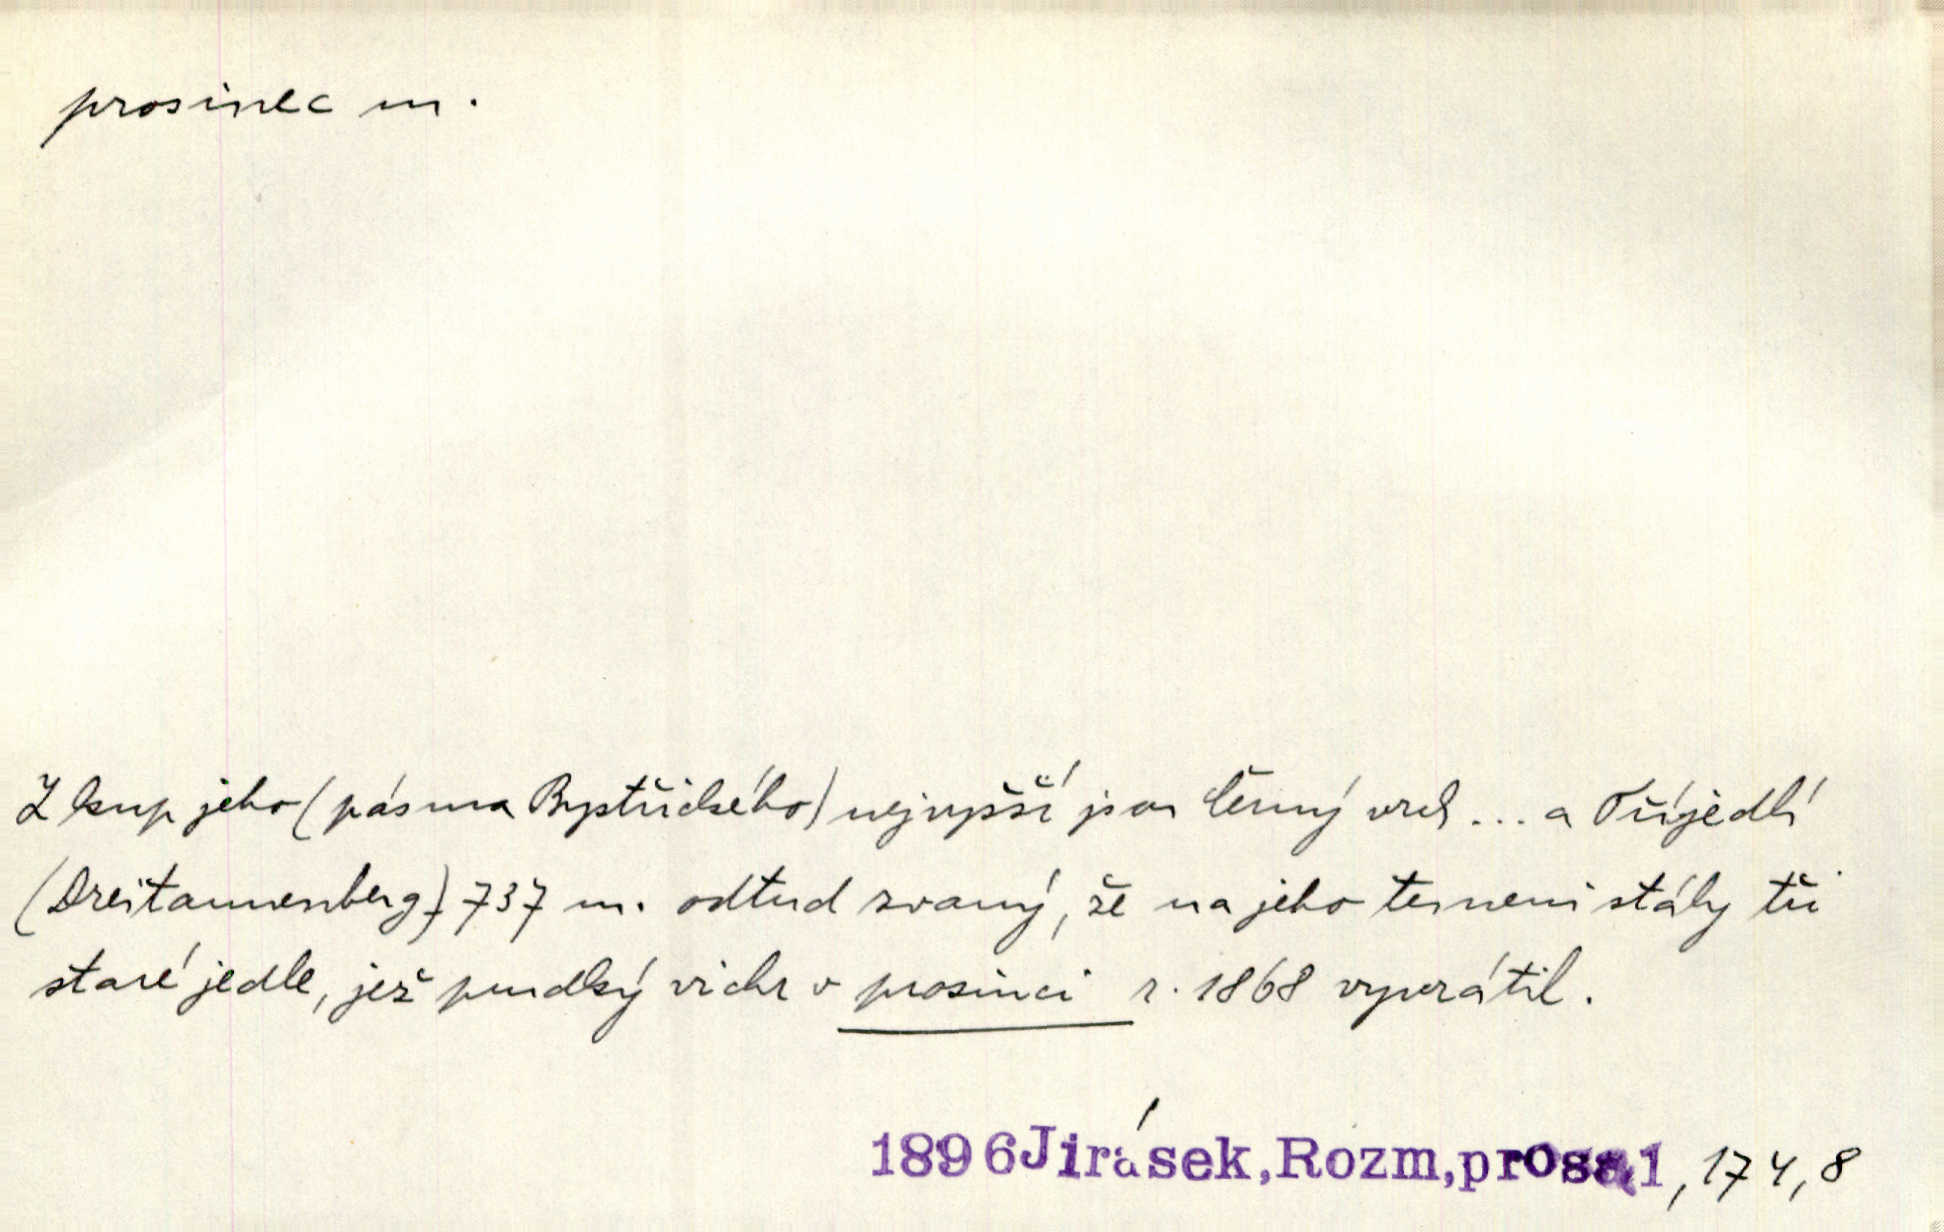 prosinec m.
Z kup jeho (pásma Bystřického) nejvyšší jsou Černý vrch ... a Tříjedlí
(Dreitannenberg) 737 m. odtud zvaný, že na jeho temeni stály tři
staré jedle, jež prudký vichr v prosinci r. 1868 vyvrátil.
1896 Jirásek, Rozm, prosa 1, 174, 8